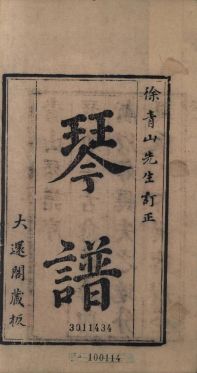 徐青山先生訂正
琴譜
大還閣藏板
3011434
100114